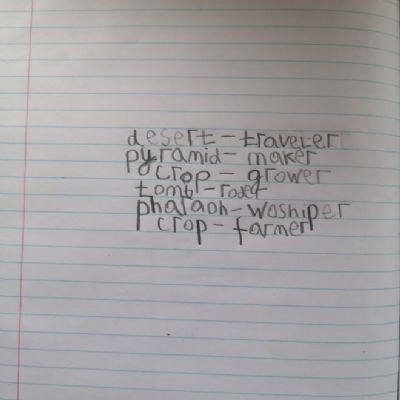 desert-traveler
pyramid-maker
crop-grower
tomb-
pharaoh-woshiper
crop-farmer